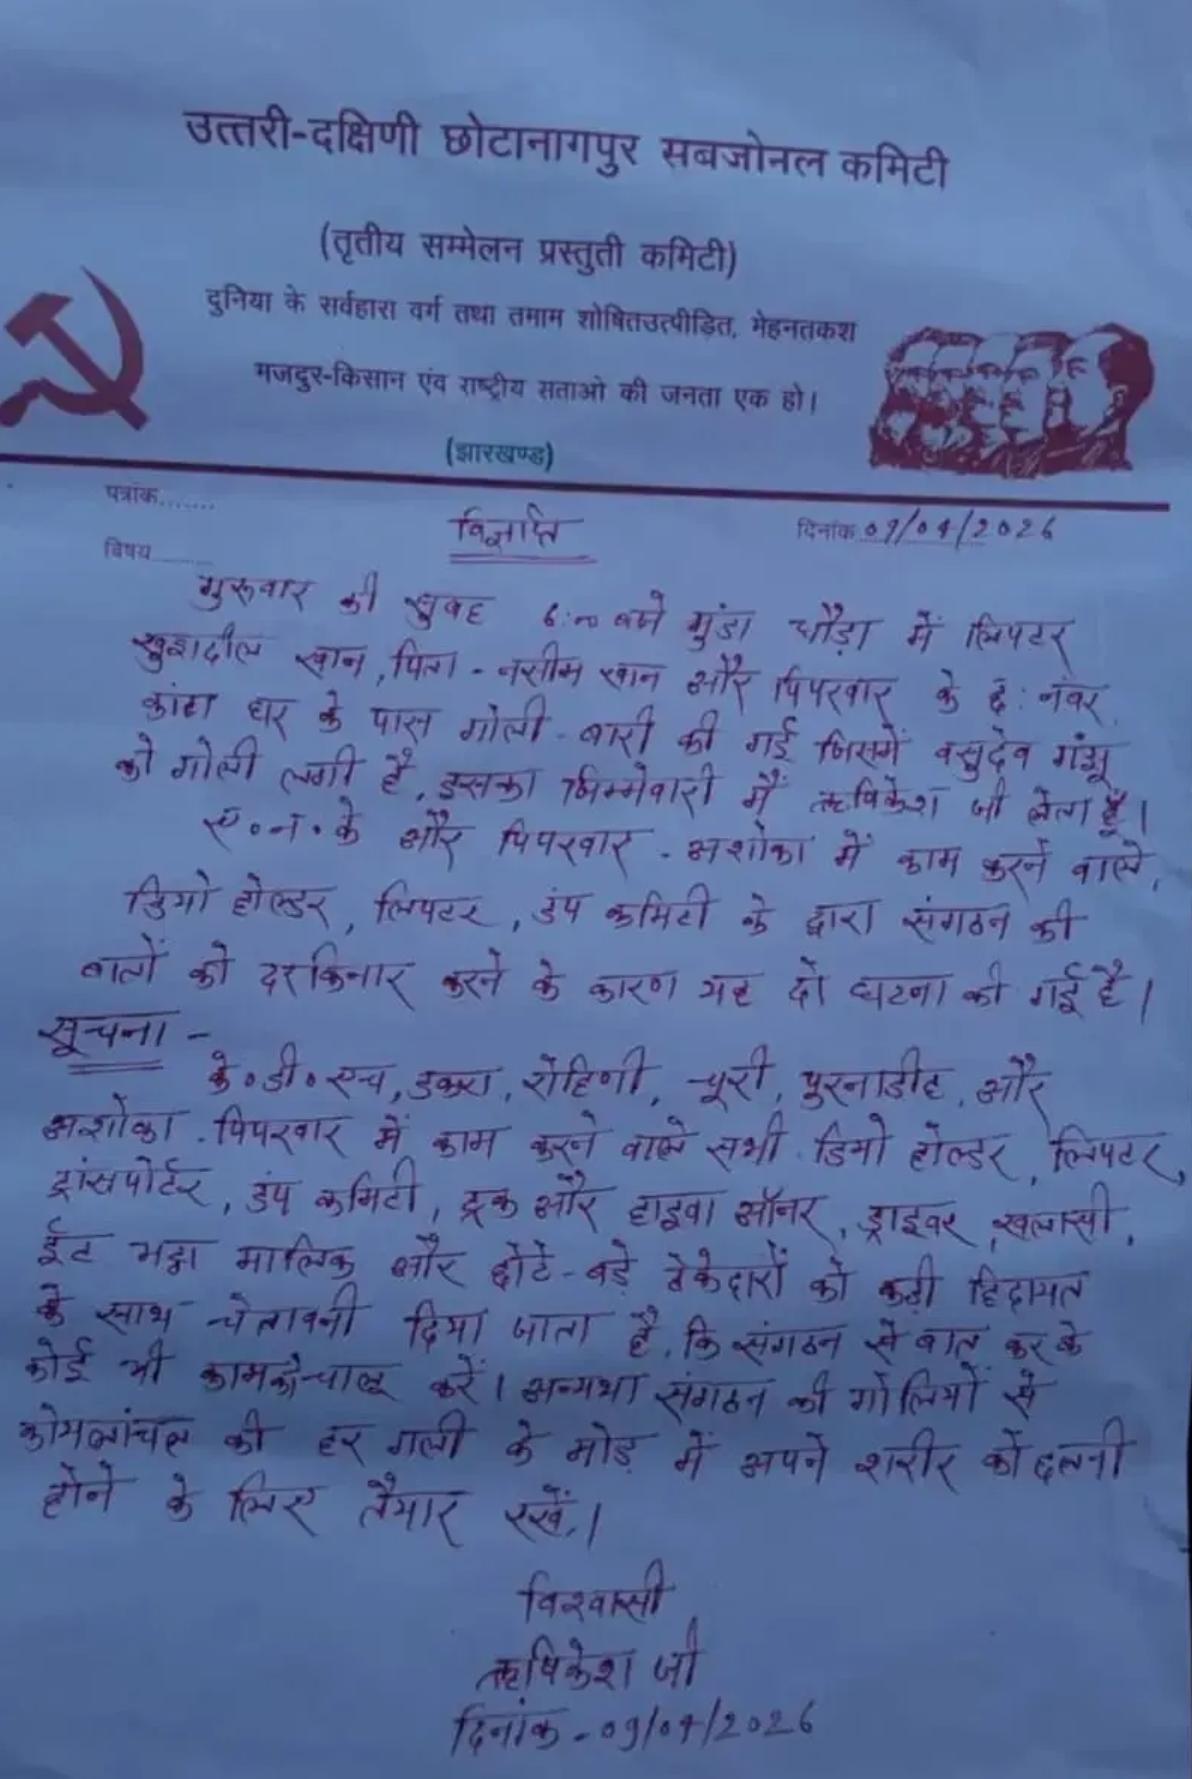 उत्तरी-दक्षिणी छोटानागपुर सबजोनल कमिटी
(तृतीय सम्मेलन प्रस्तुती कमिटी)
दुनिया के सर्वहारा वर्ग तथा तमाम शोषितउत्पीड़ित, मेहनतकश
मजदुर-किसान एंव राष्ट्रीय सताओ की जनता एक हो।
(झारखण्ड)
पत्रांक.......
विज्ञप्ति
दिनांक 09/04/2026
विषय.......
गुरुवार की सुबह 6:00 बजे मुंडा चौड़ा में लिफ्टर
खुशदील खान, पिता - नसीम खान और पिपरवार के 6: नंबर
कांटा घर के पास गोली-बारी की गई जिसमें वसुदेव गंझू
को गोली लगी है, इसका जिम्मेवारी मैं ऋषिकेश जी लेता हूँ।
ए॰न॰के और पिपरवार - अशोका में काम करने वाले,
डियो होल्डर, लिफ्टर, डंप कमिटी के द्वारा संगठन की
बातों को दरकिनार करने के कारण यह दो घटना की गई है।
सूचना -
के॰डी॰एच, डकरा, रोहिणी, चूरी, पुरनाडीह, और
अशोका - पिपरवार में काम करने वाले सभी डियो होल्डर, लिफ्टर,
ट्रांसपोर्टर, डंप कमिटी, ट्रक और हाइवा ऑनर, ड्राइवर, खलासी,
ईट भट्ठा मालिक और छोटे-बड़े ठेकेदारों को कड़ी हिदायत
के साथ चेतावनी दिया जाता है, कि संगठन से बात कर के
कोई भी काम को चालू करें। अन्यथा संगठन की गोलियों से
कोयलांचल की हर गली के मोड़ में अपने शरीर को छलनी
होने के लिए तैयार रखें।
विश्वासी
ऋषिकेश जी
दिनांक - 09/04/2026